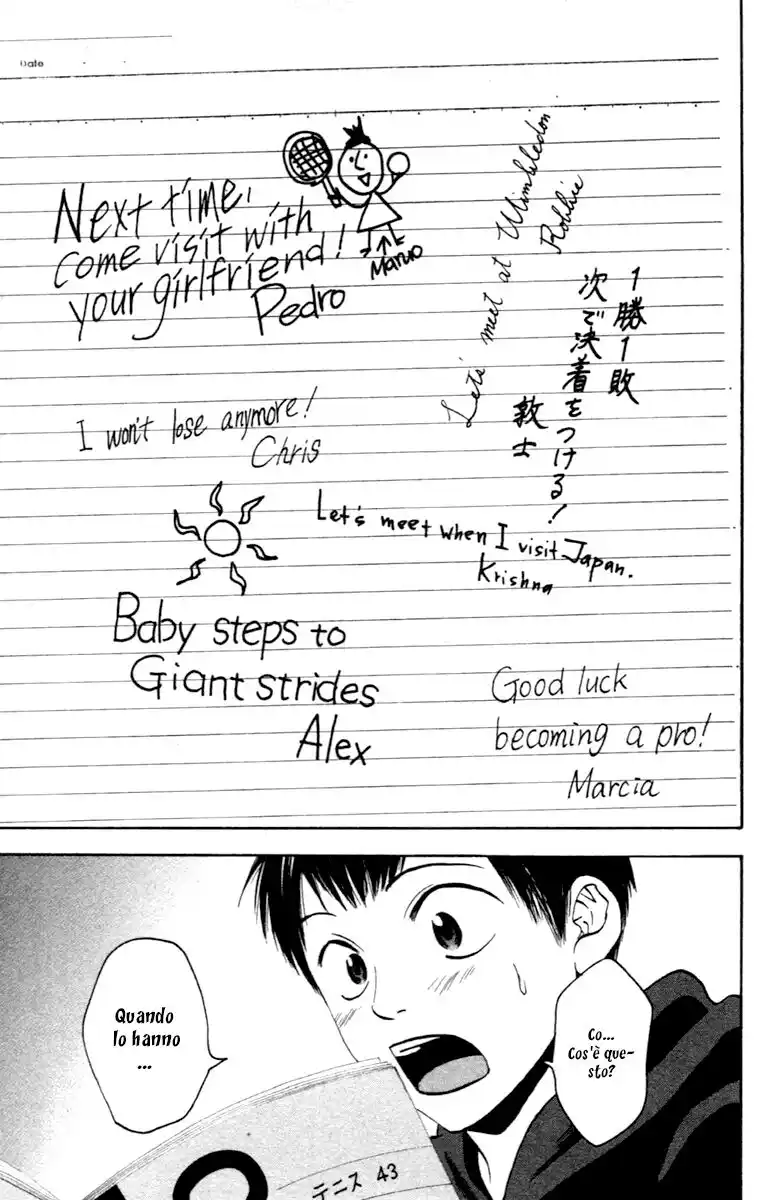 Date
Next time,
come visit with
your girlfriend!
Pedro
Maruo
Lets' meet at Wimbledon
Robbie
1勝1敗
次で決着をつける!
敦士
I won't lose anymore!
Chris
Let's meet when I visit Japan.
Krishna
Baby steps to
Giant strides
Alex
Good luck
becoming a pro!
Marcia
Co...
Cos'è que-
sto?
Quando
lo hanno
...
テニス 43